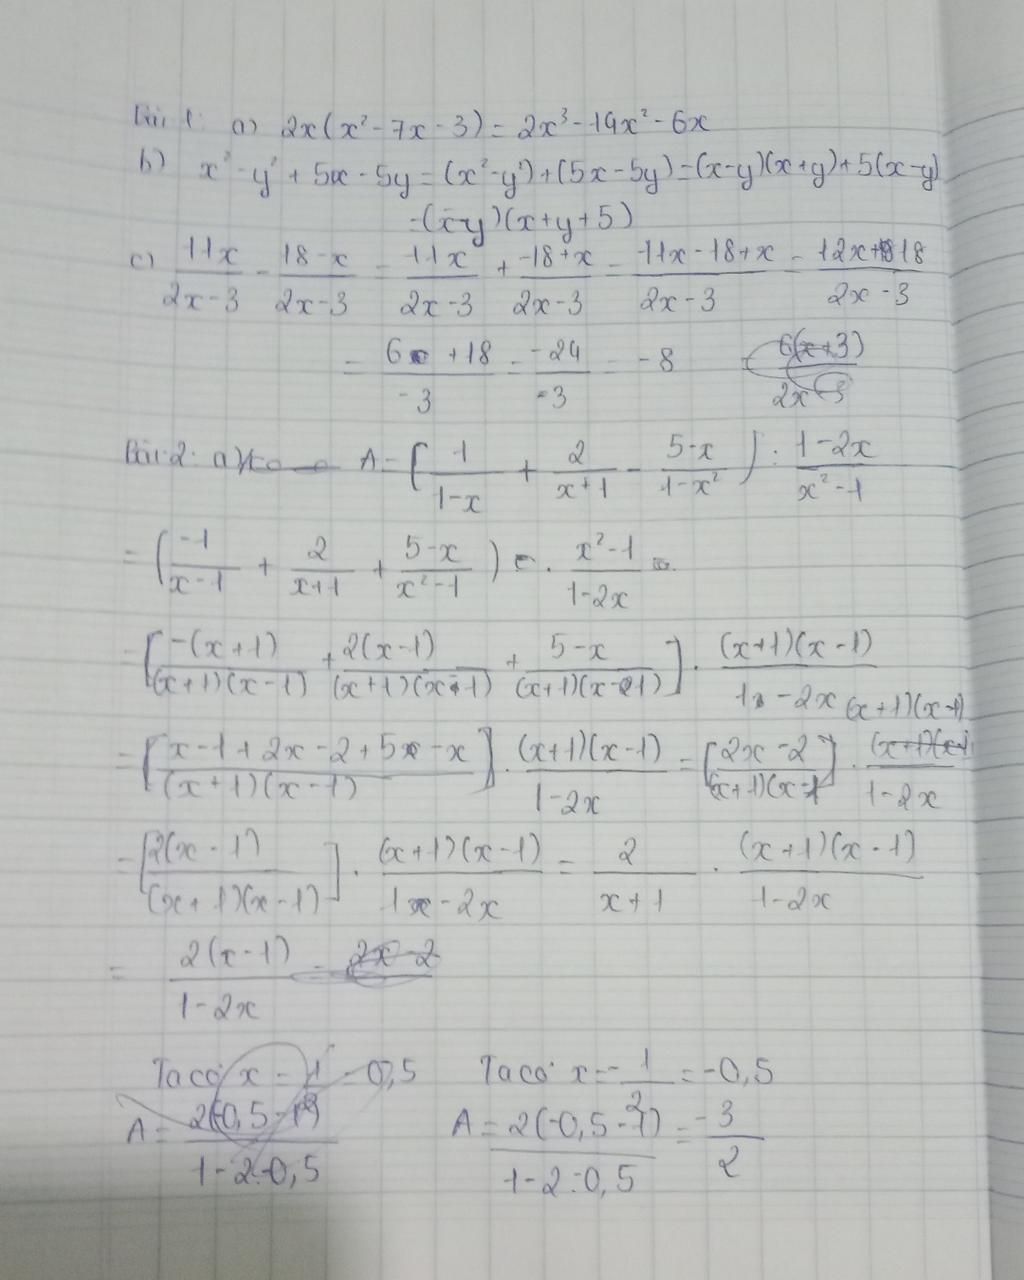 Bài 1: a) 2x(x² - 7x - 3) = 2x³ - 14x² - 6x
b) x² - y² + 5x - 5y = (x² - y²) + (5x - 5y) = (x - y)(x + y) + 5(x - y)
= (x - y)(x + y + 5)
c) 11x/(2x - 3) - (18 - x)/(2x - 3) = 11x/(2x - 3) + (-18 + x)/(2x - 3) = (11x - 18 + x)/(2x - 3) = (12x + 18)/(2x - 3)
= (6 + 18)/(-3) = -24/-3 = -8
Bài 2: a) A = [1/(1 - x) + 2/(x + 1) - (5 - x)/(1 - x²)] : (1 - 2x)/(x² - 1)
= (-1/(x - 1) + 2/(x + 1) + (5 - x)/(x² - 1)) . (x² - 1)/(1 - 2x) =
= [-(x + 1)/((x + 1)(x - 1)) + 2(x - 1)/((x + 1)(x - 1)) + (5 - x)/((x + 1)(x - 1))] . (x + 1)(x - 1)/(1 - 2x)
= [(x - 1 + 2x - 2 + 5 - x)/((x + 1)(x - 1))] . (x + 1)(x - 1)/(1 - 2x) = [(2x - 2)/((x + 1)(x - 1))] . (x + 1)(x - 1)/(1 - 2x)
= [2(x - 1)/((x + 1)(x - 1))] . (x + 1)(x - 1)/(1 - 2x) = 2/(x + 1) . (x + 1)(x - 1)/(1 - 2x)
= 2(x - 1)/(1 - 2x)
Ta có x = -1/2 = -0,5
A = 2(-0,5 - 1)/(1 - 2.-0,5) = -3/2